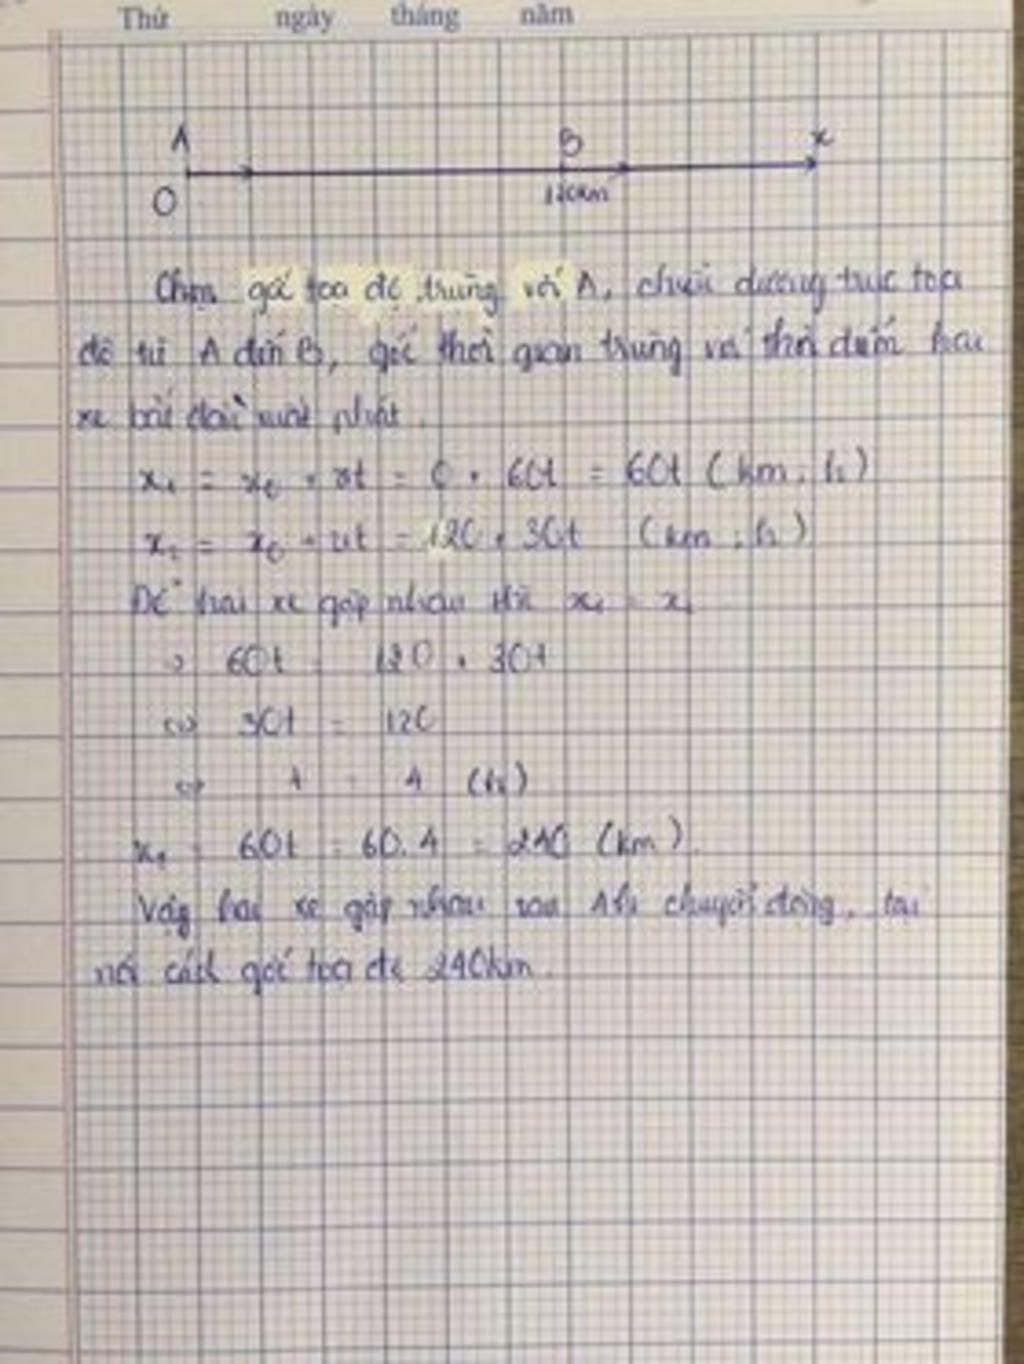 Thứ ngày tháng năm
A B x
O 120km
Chọn gốc tọa độ trùng với A, chiều dương trục tọa
độ từ A đến B, gốc thời gian trùng với thời điểm hai
xe bắt đầu xuất phát.
x₁ = x₀ + vt = 0 + 60t = 60t (km, h)
x₂ = x₀ + vt = 120 + 30t (km, h)
Để hai xe gặp nhau thì x₁ = x₂
60t = 120 + 30t
⇔ 30t = 120
⇔ t = 4 (h)
x₁ = 60t = 60.4 = 240 (km).
Vậy hai xe gặp nhau sau 4h chuyển động, tại
nơi cách gốc tọa độ 240km.